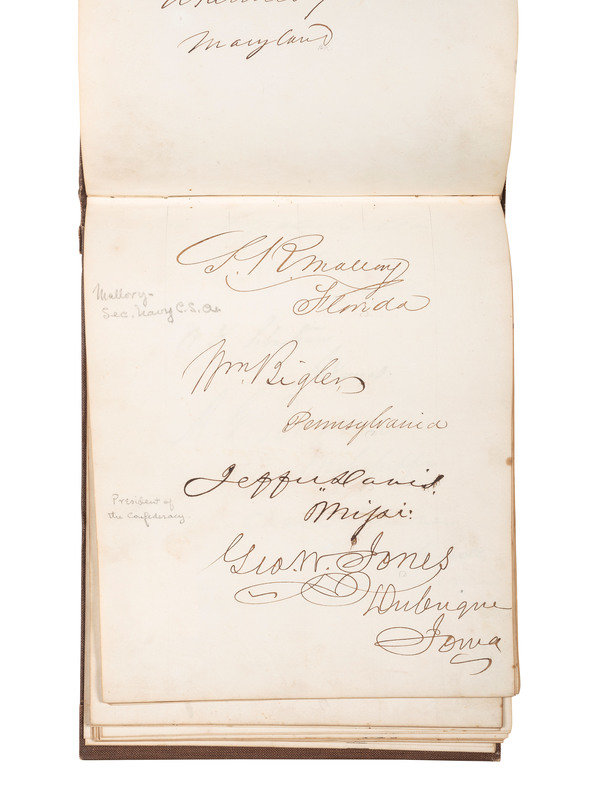 Maryland
S. R. Mallory
Florida
Mallory-
Sec. Navy C.S.A.
Wm. Bigler
Pennsylvania
Jeffer Davis.
Missi:
President of
the Confederacy
Geo. W. Jones
Dubuque
Iowa